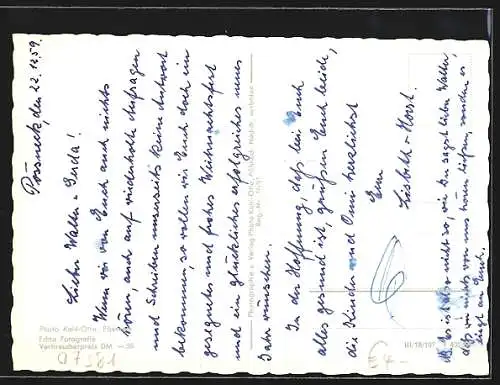 Pössneck, den 22.12.59.
Lieber Walter u. Gerda!
Wenn wir von Euch auch nichts
hören, auch auf wiederholte Anfragen
und Schreiben unserseits keine Antwort
bekommen, so wollen wir Euch doch ein
gesegnetes und frohes Weihnachtsfest
und ein glückliches erfolgreiches neues
Jahr wünschen.
In der Hoffnung, daß bei Euch
alles gesund ist, grüßen Euch beide,
die Kinder und Omi herzlichst
Eure
Lisbeth u. Horst.
es ist also nicht so, wie Du sagst lieber Walter,
daß wir nichts von uns hören ließen, sondern es
liegt an Euch.
Photo Karl-Otto
Echte Fotografie
Verbraucherpreis DM
Photographie u. Verlag Photo Karl-Otto
Nachdr. verboten
Reg.-Nr.
III/18/197
07381
€4-